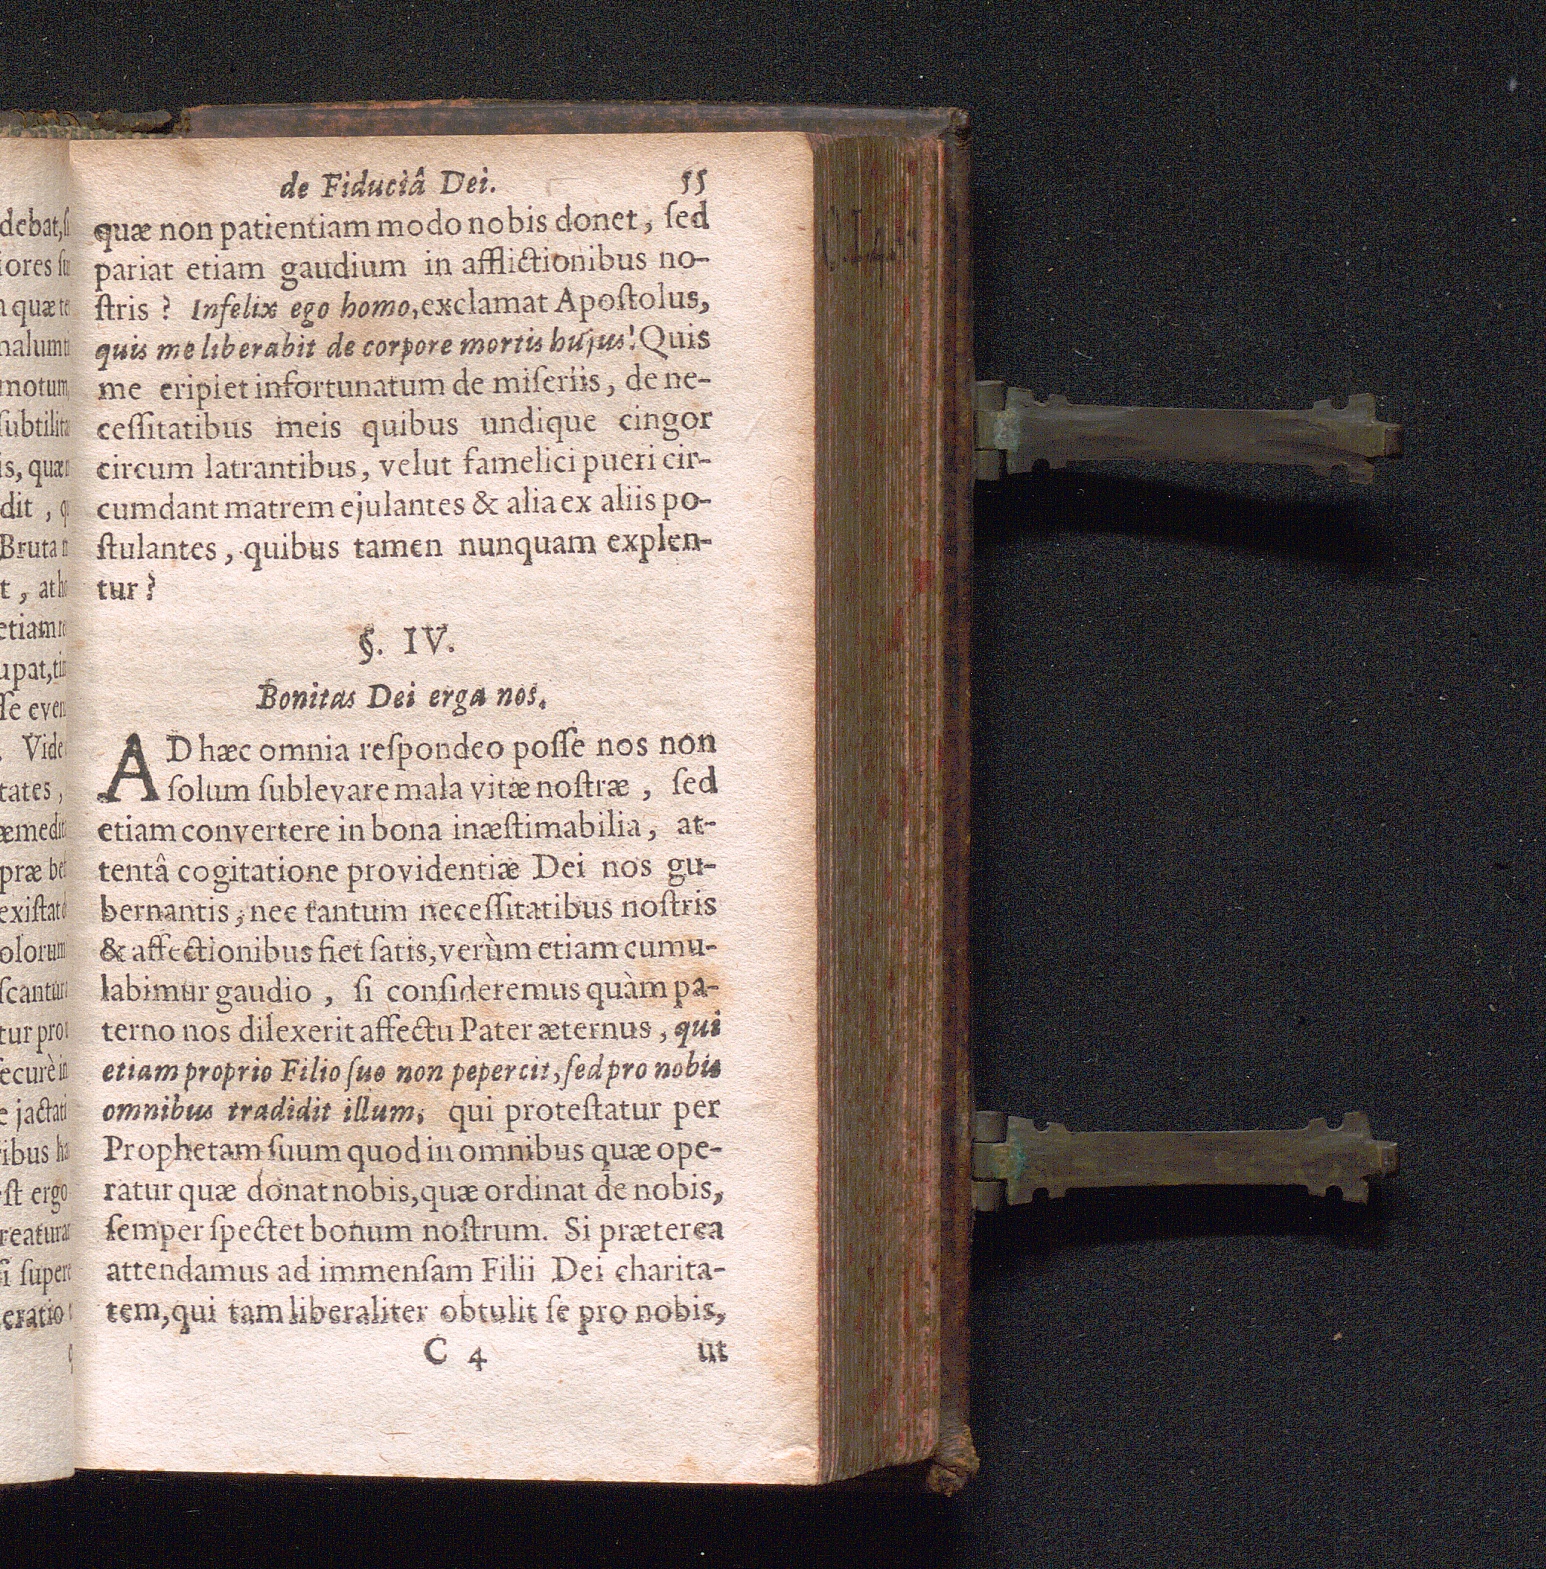 de Fiduciâ Dei. 55
quæ non patientiam modo nobis donet, ſed
pariat etiam gaudium in afflictionibus no-
ſtris ? Infelix ego homo, exclamat Apoſtolus,
quis me liberabit de corpore mortis hujus! Quis
me eripiet infortunatum de miſeriis, de ne-
ceſſitatibus meis quibus undique cingor
circum latrantibus, velut famelici pueri cir-
cumdant matrem ejulantes & alia ex aliis po-
ſtulantes, quibus tamen nunquam explen-
tur ?
§. IV.
Bonitas Dei erga nos.
AD hæc omnia reſpondeo poſſe nos non
ſolum ſublevare mala vitæ noſtræ, ſed
etiam convertere in bona inæſtimabilia, at-
tentâ cogitatione providentiæ Dei nos gu-
bernantis, nec tantum neceſſitatibus noſtris
& affectionibus fiet ſatis, verùm etiam cumu-
labimur gaudio, ſi conſideremus quàm pa-
terno nos dilexerit affectu Pater æternus, qui
etiam proprio Filio ſuo non pepercit, ſed pro nobis
omnibus tradidit illum, qui proteſtatur per
Prophetam ſuum quod in omnibus quæ ope-
ratur quæ donat nobis, quæ ordinat de nobis,
ſemper ſpectet bonum noſtrum. Si præterea
attendamus ad immenſam Filii Dei charita-
tem, qui tam liberaliter obtulit ſe pro nobis,
C 4 ut